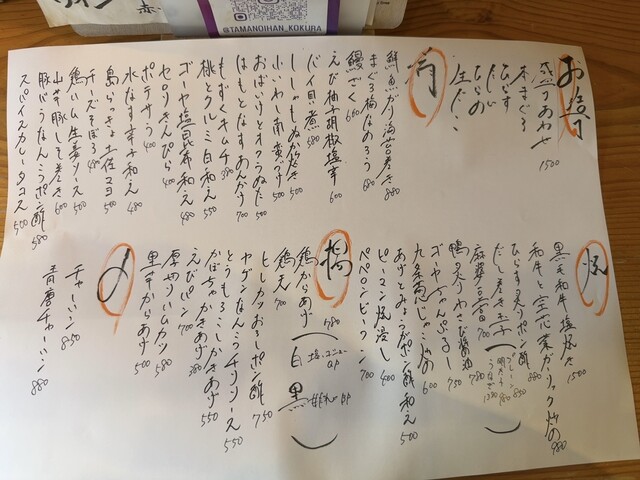 ワイン
@TAMANOIHAN_KOKURA
お造り
盛り合わせ 1500
本まぐろ
ひらす
たい
ひらめ
生だこ
肴
鮮魚ガリ海苔巻き 880
まぐろ梅なめろう 680
鰻ざく 660
えび柚子胡椒塩辛 600
バイ貝煮 580
ししゃもぬか炊き 500
小いわし南蛮づけ 500
おばいけとオクラぬた 500
はもとなすあんかけ 700
もずくキムチ 380
桃とクルミ白和え 550
ゴーヤ塩昆布和え 480
セロリきんぴら 400
ポテサラ 400
水なす辛子和え 480
島らっきょ土佐ヨヨ 500
チーズそぼろ 480
鶏ハム生姜ソース 500
山芋豚しそ巻き 600
豚バラなんこつポン酢 580
スパイスカレータコス 500
焼
黒毛和牛塩炊き 1500
和牛と空心菜ガーリック炒め 980
ひらす炙りポン酢 880
だし巻き玉子
麻婆豆富 700
鴨炙りわさび醤油 780
ゴーヤちゃんぷるー 750
九条葱んじゃこ炒め 600
あげとみょうがポン酢和え 500
ピーマン炊浸し 400
ペペロンビーフン 700
揚
鶏からあげ 780
白
黒
鶏天 700
ヒレカツおろしポン酢 750
ヤゲンなんこつチリソース 550
とうもろこしかきあげ 550
かぼちゃかきあげ 380
えびパン 700
厚切りハムカツ 580
里芋からあげ 500
〆
チャーハン 850
青唐チャーハン 880